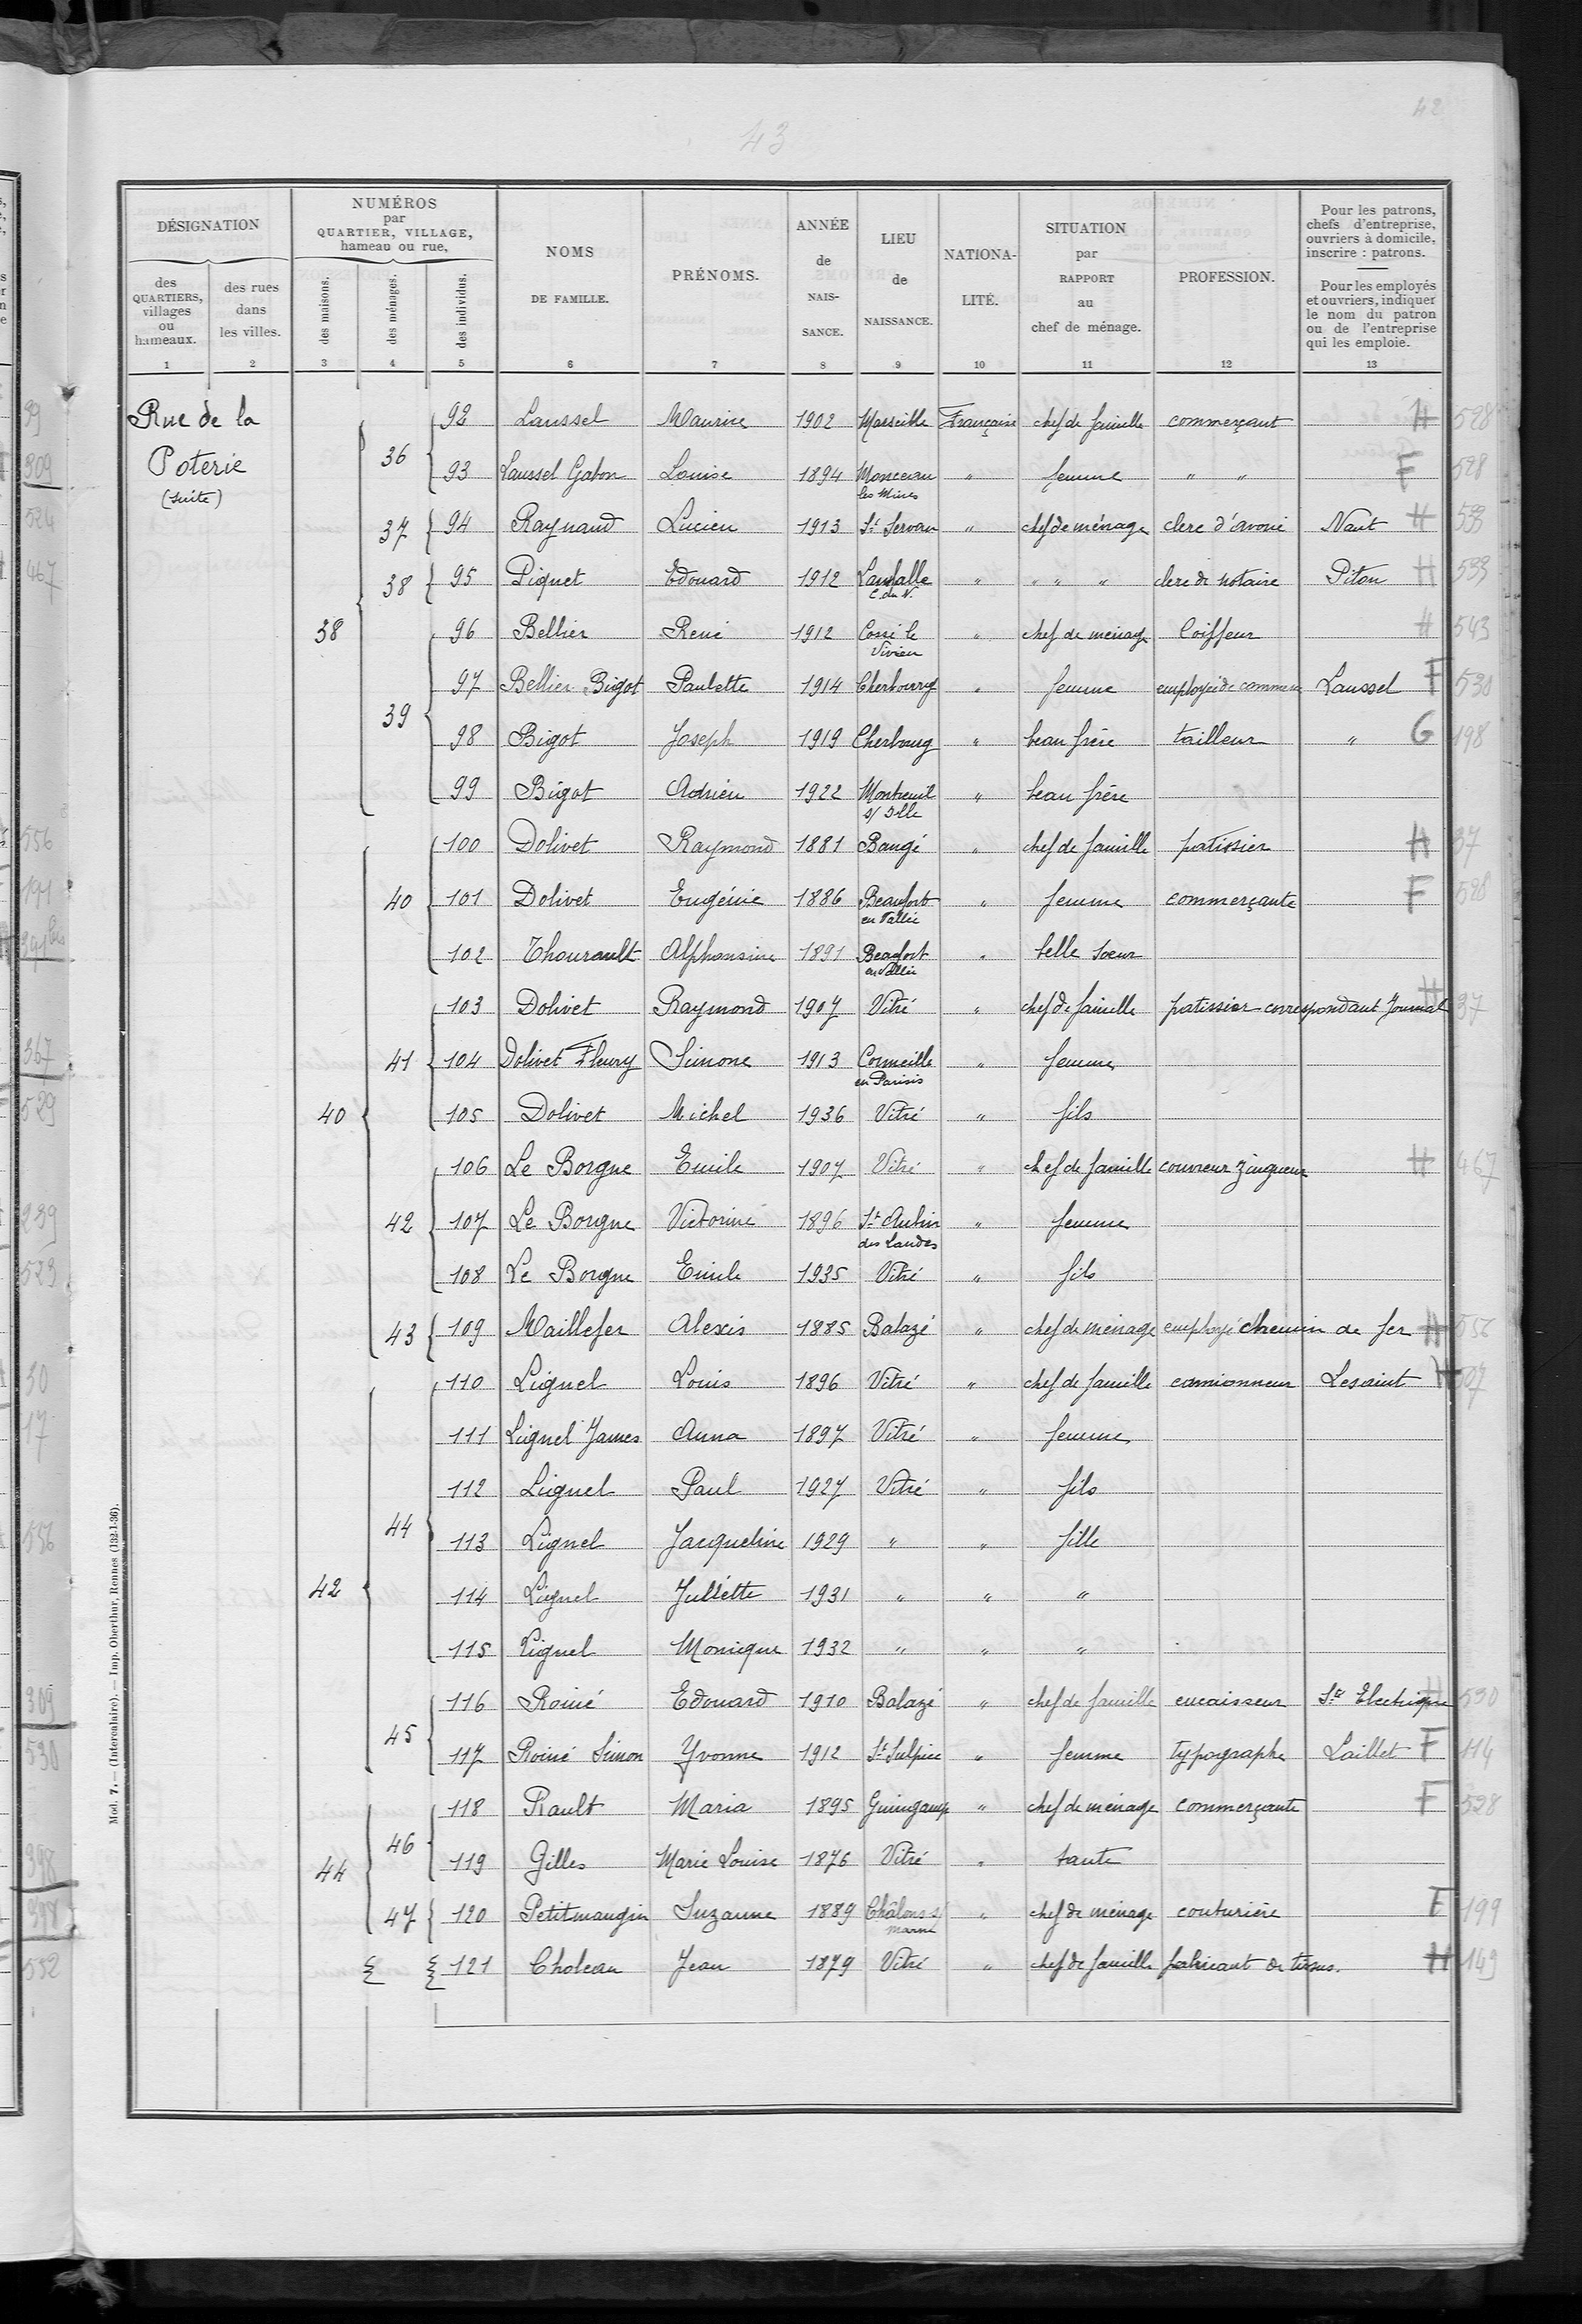 42
43
DÉSIGNATION
des QUARTIERS, villages ou hameaux.
des rues dans les villes.
NUMÉROS par QUARTIER, VILLAGE, hameau ou rue.
des maisons.
des ménages.
des individus.
NOMS DE FAMILLE.
PRÉNOMS.
ANNÉE de NAIS-SANCE.
LIEU de NAISSANCE.
NATIONA-LITÉ.
SITUATION par RAPPORT au chef de ménage.
PROFESSION.
Pour les patrons, chefs d'entreprise, ouvriers à domicile, inscrire : patrons.
Pour les employés et ouvriers, indiquer le nom du patron ou de l'entreprise qui les emploie.
1 2 3 4 5 6 7 8 9 10 11 12 13
Rue de la
Poterie
(suite)
36 92 Laussel Maurice 1902 Marseille Française chef de famille commerçant H 528
93 Laussel Gabon Louise 1894 Monceau les Mines " femme " " F 528
37 94 Raynaud Lucien 1913 St Servan " chef de ménage clerc d'avoué Naut H 533
38 95 Piquet Edouard 1912 Lamballe C. du N. " " " " clerc de notaire Piton H 533
38 96 Bellier René 1912 Cossé le Vivien " chef de ménage Coiffeur H 543
39 97 Bellier Bigot Paulette 1914 Cherbourg " femme employée de commerce Laussel F 530
98 Bigot Joseph 1919 Cherbourg " beau frère tailleur " G 198
99 Bigot Adrien 1922 Montreuil s/ Ille " beau frère
100 Dolivet Raymond 1881 Baugé " chef de famille patissier H 37
40 101 Dolivet Eugénie 1886 Beaufort en Vallée " femme commerçante F 528
102 Thourault Alphonsine 1891 Beaufort en Vallée " belle sœur
103 Dolivet Raymond 1907 Vitré " chef de famille patissier correspondant Journal H 37
41 104 Dolivet Fleury Simone 1913 Cormeille en Parisis " femme
40 105 Dolivet Michel 1936 Vitré " fils
106 Le Borgne Emile 1907 Vitré " chef de famille couvreur zingueur H 467
42 107 Le Borgne Victorine 1896 St Aubin des Landes " femme
108 Le Borgne Emile 1935 Vitré " fils
43 109 Maillefer Alexis 1885 Balazé " chef de ménage employé chemin de fer H 556
110 Lignel Louis 1896 Vitré " chef de famille camionneur Lesaint H 507
111 Lignel James Anna 1897 Vitré " femme
112 Lignel Paul 1927 Vitré " fils
44 113 Lignel Jacqueline 1929 " " fille
42 114 Lignel Juliette 1931 " " "
115 Lignel Monique 1932 " " "
116 Roiné Edouard 1910 Balazé " chef de famille encaisseur Sté Electrique H 530
45 117 Roiné Simon Yvonne 1912 St Sulpice " femme typographe Laillet F 114
118 Rault Maria 1895 Guingamp " chef de ménage commerçante F 528
46
44 119 Gilles Marie Louise 1876 Vitré " tante
47 120 Petitmaugin Suzanne 1889 Châlons s/ marne " chef de ménage couturière F 199
121 Choleau Jean 1879 Vitré " chef de famille fabricant de tissus. H 149
Mod. 7. — (Intercalaire). — Imp. Oberthur, Rennes (132-1-36).
309
524
467
556
191
367
529
239
529
30
17
556
309
530
398
398
532